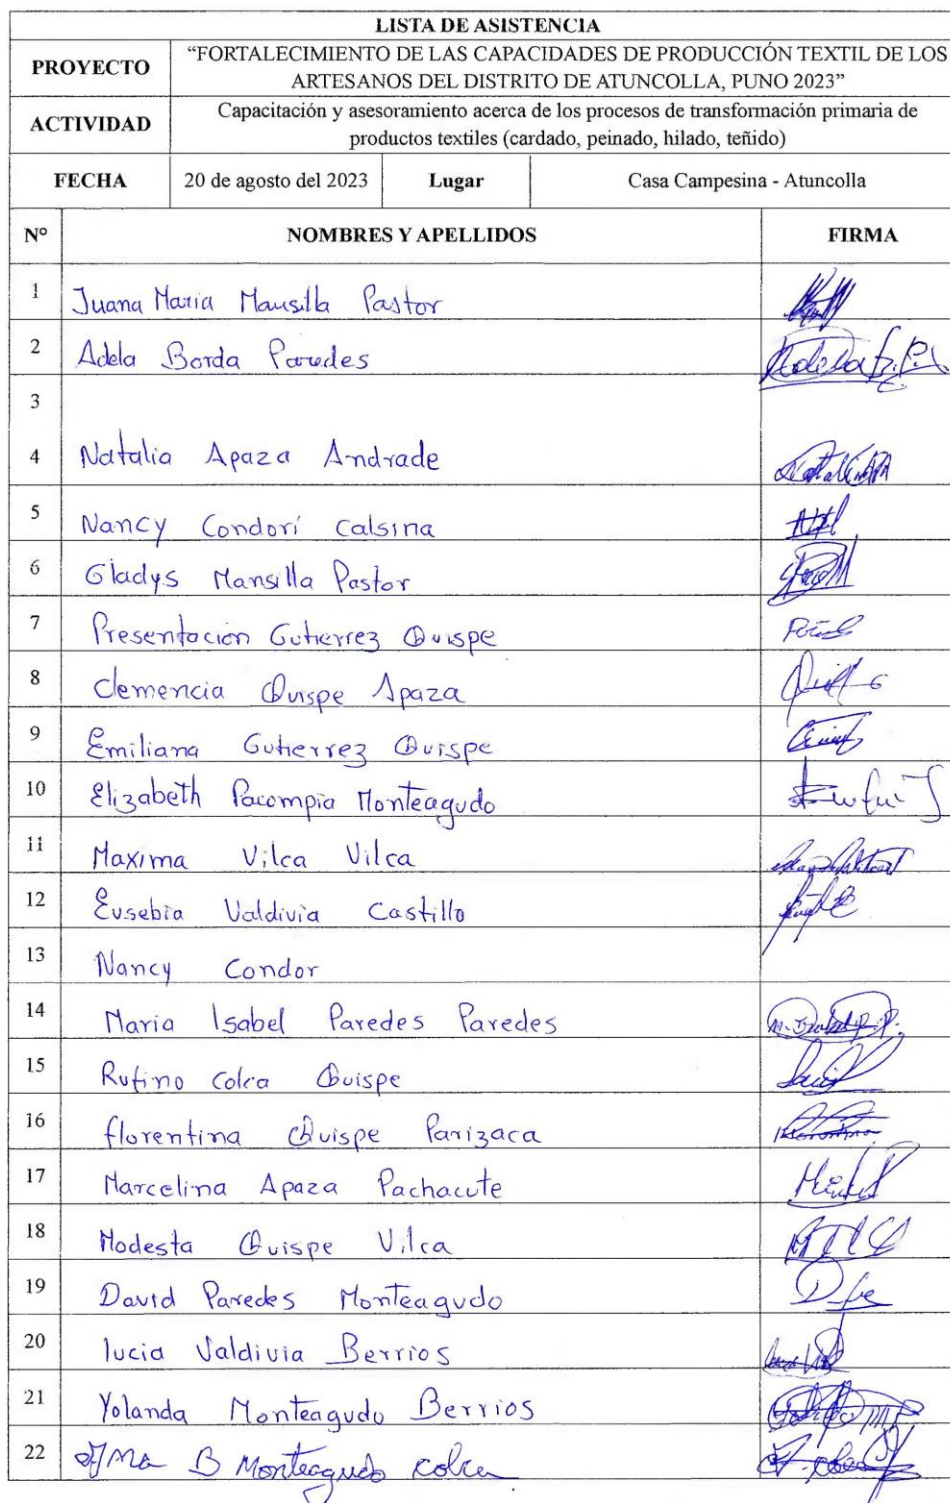 LISTA DE ASISTENCIA
PROYECTO
“FORTALECIMIENTO DE LAS CAPACIDADES DE PRODUCCIÓN TEXTIL DE LOS
ARTESANOS DEL DISTRITO DE ATUNCOLLA, PUNO 2023”
ACTIVIDAD
Capacitación y asesoramiento acerca de los procesos de transformación primaria de
productos textiles (cardado, peinado, hilado, teñido)
FECHA 20 de agosto del 2023 Lugar Casa Campesina - Atuncolla
N° NOMBRES Y APELLIDOS FIRMA
1 Juana Maria Mansilla Pastor
2 Adela Borda Paredes
3
4 Natalia Apaza Andrade
5 Nancy Condorí Calsina
6 Gladys Mansilla Pastor
7 Presentacion Gutierrez Quispe
8 Clemencia Quispe Apaza
9 Emiliana Gutierrez Quispe
10 Elizabeth Pacompia Monteagudo
11 Maxima Vilca Vilca
12 Eusebia Valdivia Castillo
13 Nancy Condor
14 Maria Isabel Paredes Paredes
15 Rufino Colca Quispe
16 florentina Quispe Parizaca
17 Marcelina Apaza Pachacute
18 Modesta Quispe Vilca
19 David Paredes Monteagudo
20 lucia Valdivia Berrios
21 Yolanda Monteagudo Berrios
22 B Monteagudo colca